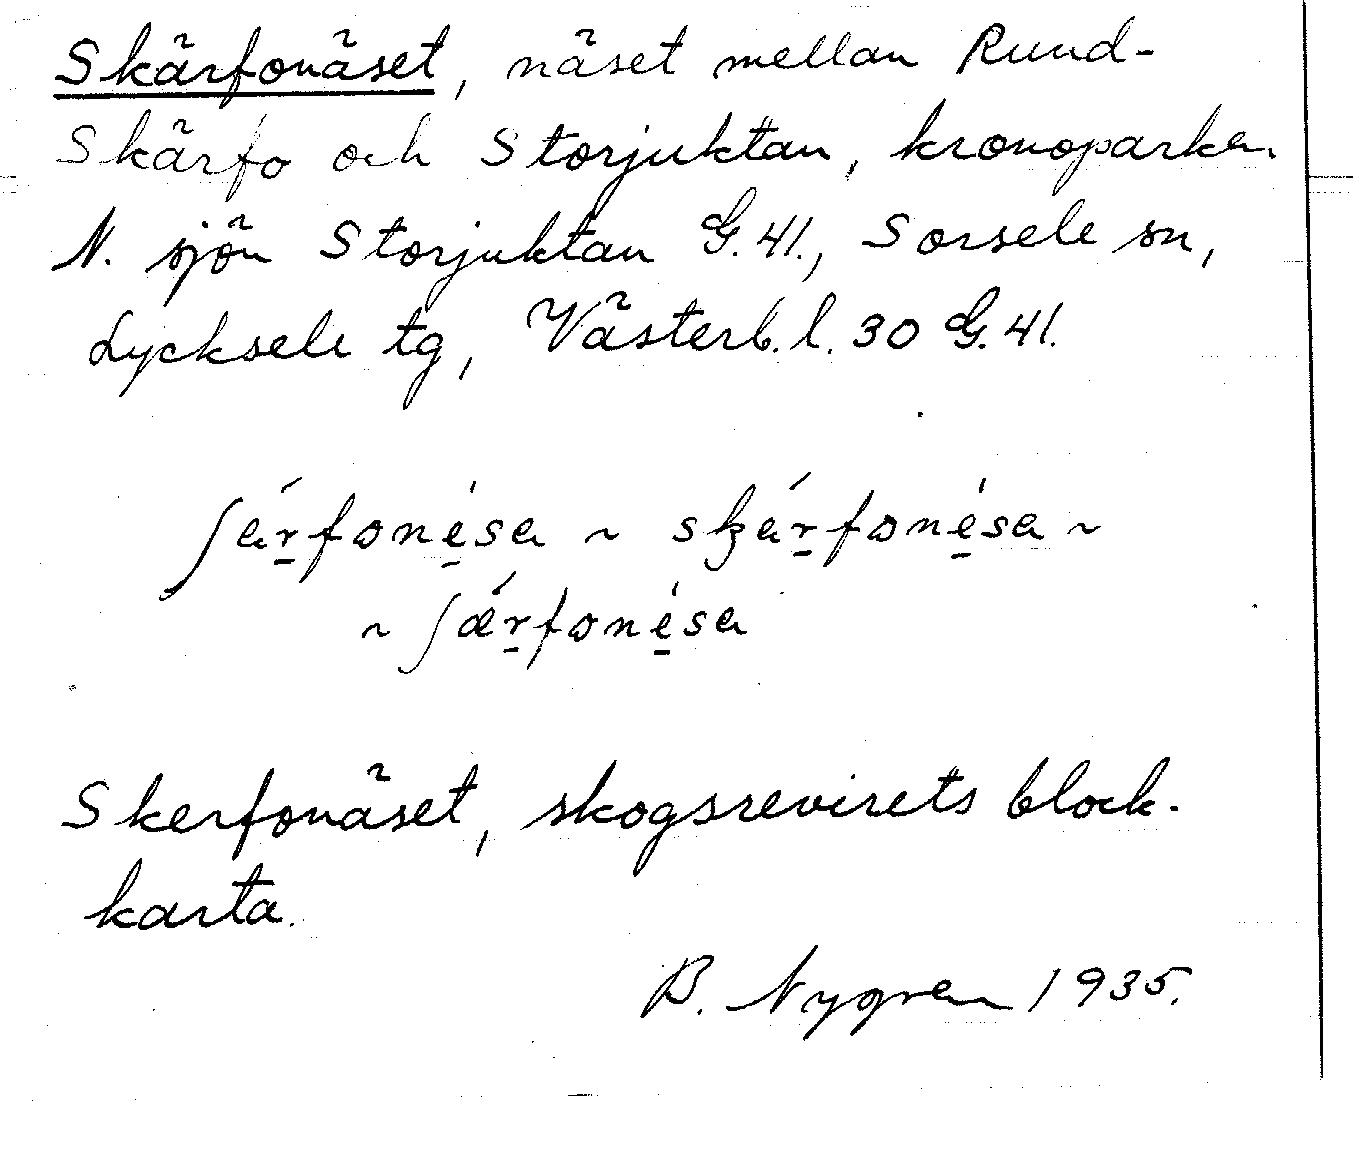 Skärfonäset, näset mellan Rund-
Skärfo och Storjuktan, kronoparken
N. sjön Storjuktan G.41., Sorsele sn,
Lycksele tg, Västerb. l. 30 G.41.
ʃárfonésa ~ skárfonésa ~
~ ʃǽrfonésa
Skerfonäset, skogsrevirets block-
karta.
B. Nygren 1935.